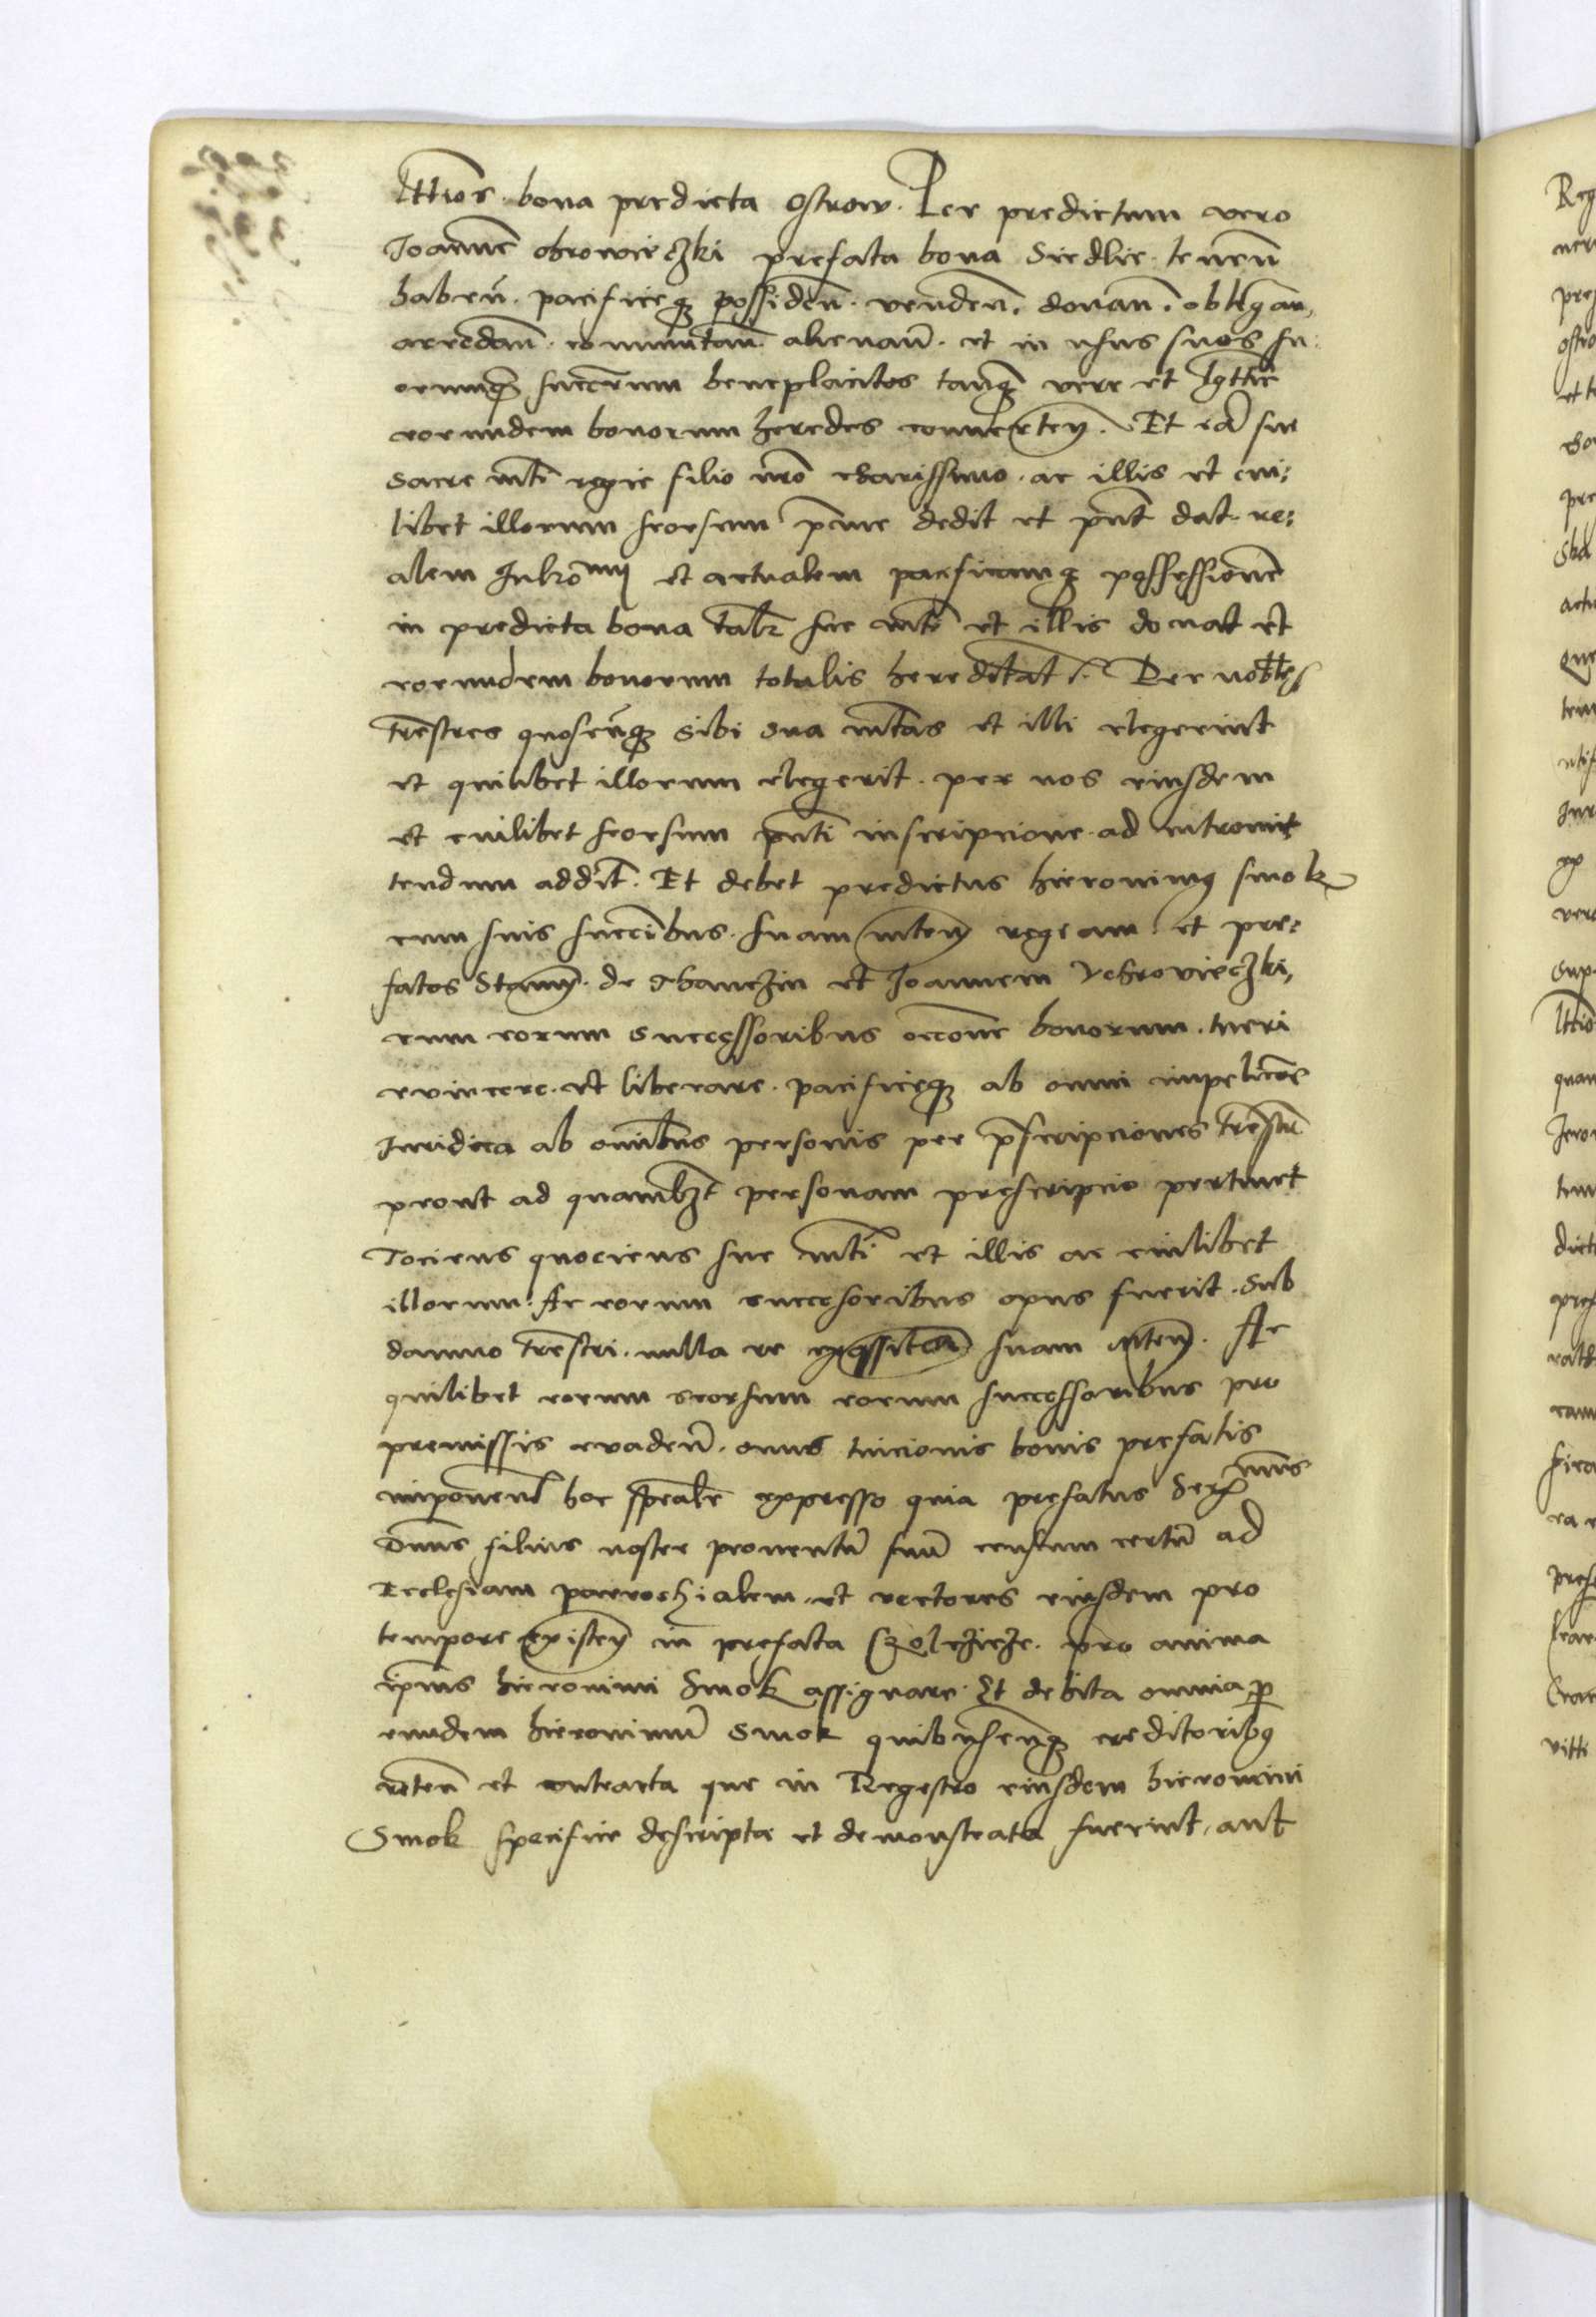 lttimos. bona predicta Ostrow. Per predictum vero
Joanne ohrowieczki prefata bona Siedlie. tenen
haben. pacificeq possiden. venden. donan. obligan,
arredan. commutan. alienan. et in usus suos su:
orumq succrum beneplacitos tanq vere et lgttie
eorundem bonorum heredes conuerten. Et ead sue
Sacre mti regie filio nro charissimo. ac illis et cui:
libet illorum seorsum pme dedit et pnt dat. re:
alem Intromi et actualem pacificamq possessione
in predicta bona talr sue mti et illis donat et
eorundem bonorum totalis hereditat. Per nobles
trestres quoscunq sibi sua mtas et illi elegerint
et quilibet illorum elegerit. per nos eiusdem
et cuilibet seorsum pnti inscripcione. ad intromit
tendum addit. Et debet predictus hieronimus smok
cum suis succibus. suam mtem regeam. et pre:
fatos Stanm. de Thanczin et Joannem Vchrovieczki,
cum eorum successoribus occone bonorum. tueri
evincere. et liberare. pacificeq ab omni impeticoe
Iuridica ab omibus personis per pscripciones trestr
prout ad quamlzt personam prescripcio pertinet
Tociens quociens sue mti et illis ac cuilibet
illorum. Ac eorum succesoribus opus fuerit. Sub
damno trestri. nulla re suam mtem. Ac
quilibet eorum seorsum eorum successoribus pro
premissis evaden. onus tuicionis bonis prefatis
imponent hoc spealr expresso quia prefatus Sermus
Dnus filius noster prouentu suu censum certu ad
Ecclesiam parrochialem. et rectores eiusdem pro
tempore existen in prefata Szolczicze. pro anima
ipius hieronimi Smok assignare. Et debita omnia p
eundem hieronimu Smok quibuscunq creditoribus
reten et contracta que in Regestro eiusdem hieronimi
Smok specifice descripta et demonstrata fuerint, aut